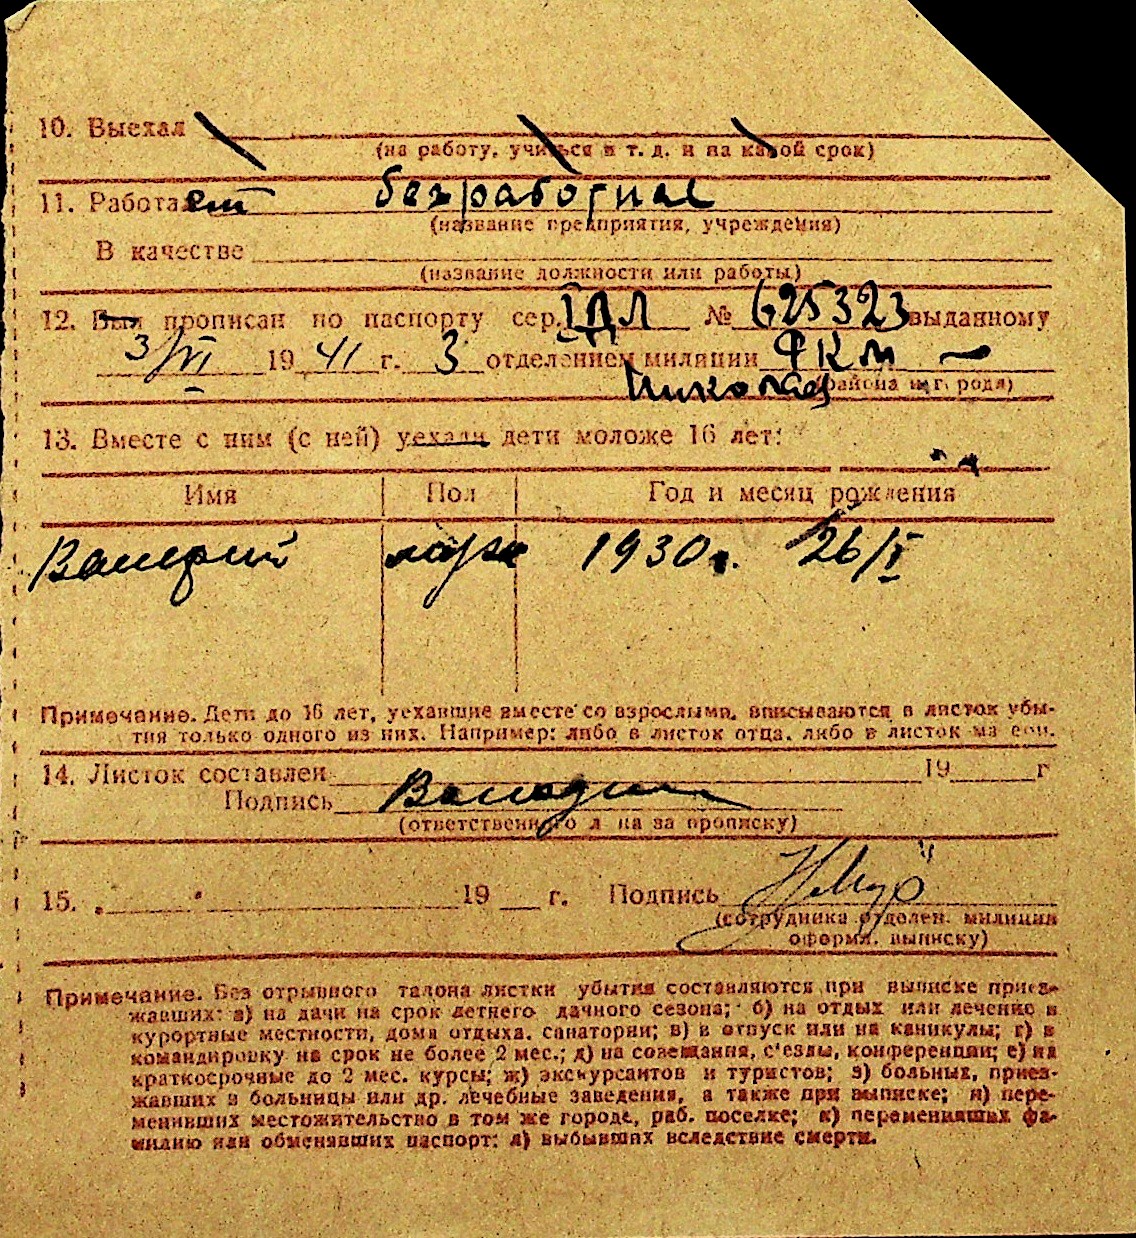 10. Выехал
(на работу, учиться и т. д. и на какой срок)
11. Работает безработная
(название предприятия, учреждения)
В качестве
(название должности или работы)
12. Был прописан по паспорту сер. IДЛ № 625323 выданному
3/VI 1941 г. 3 отделением милиции ФКМ
Николаев (района и г. рода)
13. Вместе с ним (с ней) уехали дети моложе 16 лет:
Имя Пол Год и месяц рождения
Валерий муж 1930г. 26/I
Примечание. Дети до 16 лет, уехавшие вместе со взрослыми, вписываются в листок убы-
тия только одного из них. Например: либо в листок отца, либо в листок матери.
14. Листок составлен 19 г
Подпись
(ответственного л на за прописку)
15. „ " 19 г. Подпись
(сотрудника отделен. милиции
оформл. выписку)
Примечание. Без отрывного талона листки убытия составляются при выписке приез-
жавших: а) на дачи на срок летнего дачного сезона; б) на отдых или лечение в
курортные местности, дома отдыха, санатории; в) в отпуск или на каникулы; г) в
командировку на срок не более 2 мес.; д) на совещания, с'езды, конференции; е) на
краткосрочные до 2 мес. курсы; ж) экскурсантов и туристов; з) больных, приез-
жавших в больницы или др. лечебные заведения, а также при выписке; и) пере-
менивших местожительство в том же городе, раб. поселке; к) переменивших фа-
милию или обменявших паспорт; л) выбывших вследствие смерти.